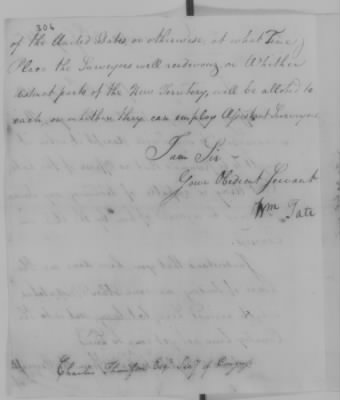 306
of the United States or otherwise, at what Time &
Place the Surveyors will rendezvous or Whether
distinct parts of the New Territory, will be allowed to
each, or whether they can employ Assistant Surveyors
I am Sir
Your Obedient Servant
Wm Tate
Charles Thomson Esqr Secy of Congress